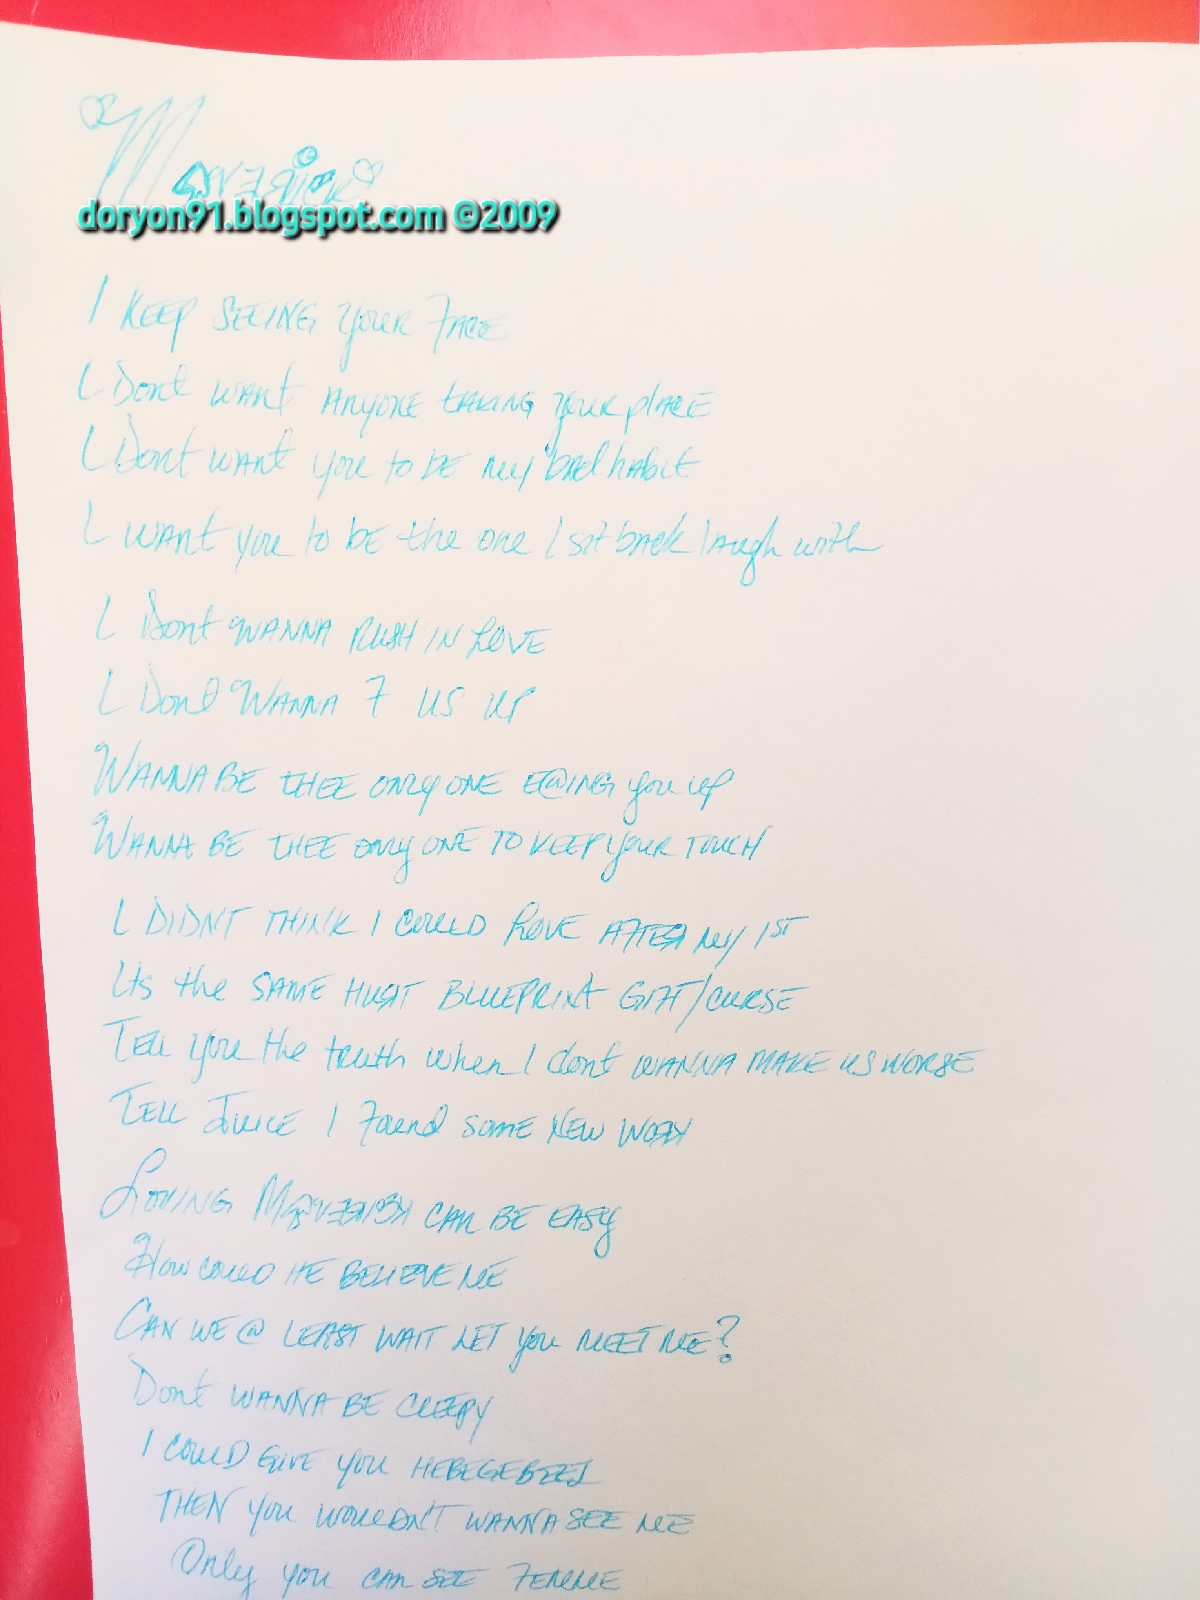 Maverick
doryon91.blogspot.com ©2009
I KEEP SEEING YOUR FACE
I Dont want ANYONE tAKING YOUR plACE
I Dont want you to bE my bad habit
I WANt you to bE the one I sit back laugh with
I Dont WANNA RUSH IN LOVE
I Dont WANNA F US UP
WANNA BE THEE ONLY ONE E@ING you up
WANNA BE THEE ONLY ONE TO KEEP YOUR TOUCH
I DIDNT THINK I COULD LOVE AFTER MY 1ST
Its the SAME HURT BLUEPRINT GIFT/CURSE
TELL you the truth when I dont WANNA MAKE US WORSE
TELL JUICE I Found SOME NEW WORK
LOVING M@VERICK CAN BE EASY
HOW COULD HE BELIEVE ME
CAN WE @ LEAST WAIT LET you MEET ME?
Dont WANNA BE CREEPY
I COULD GIVE YOU HEBEGEBEES
THEN YOU WOULDN'T WANNA SEE ME
Only you CAN SEE FEMME